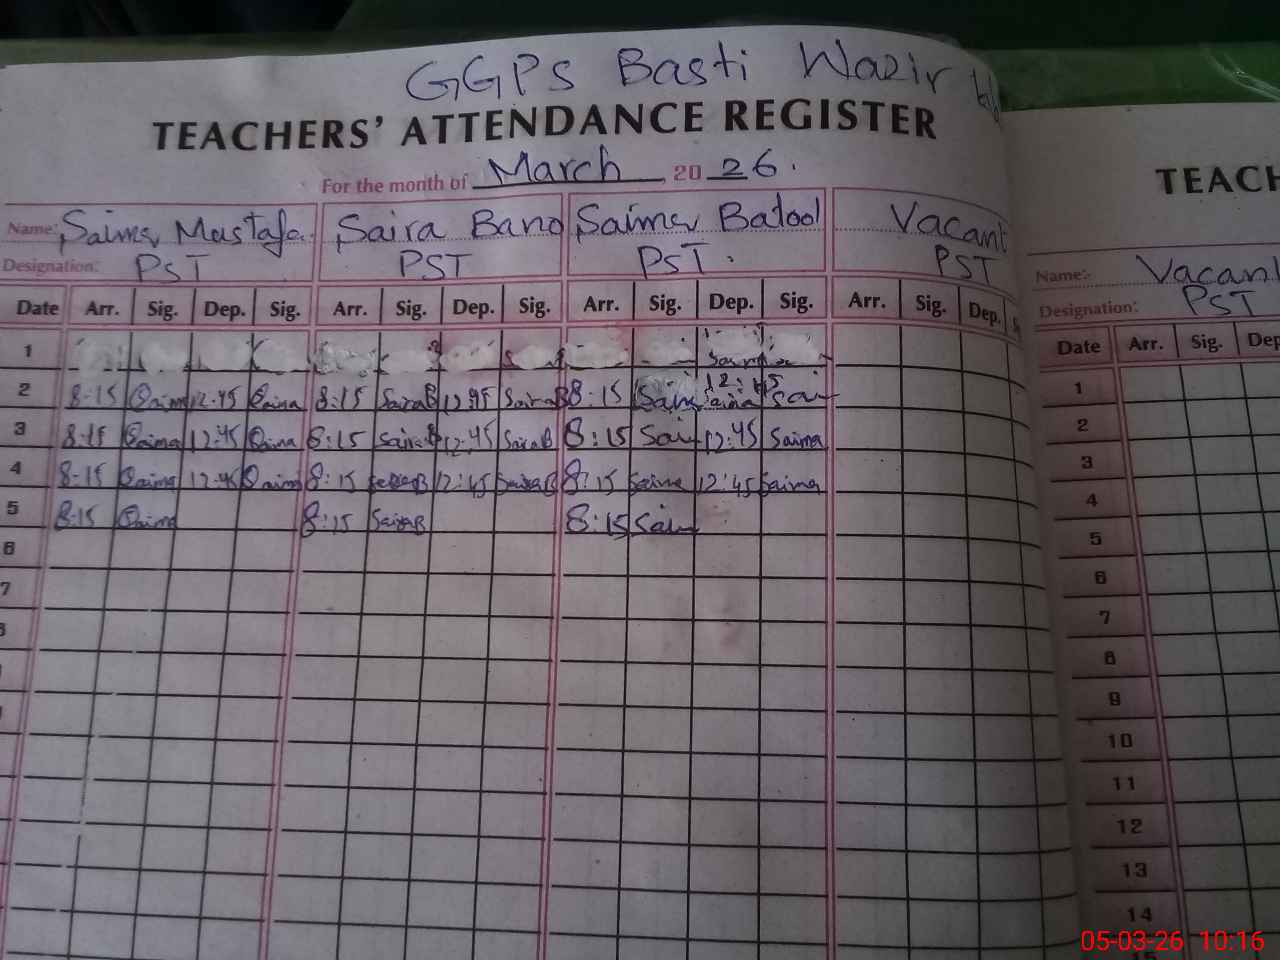 GGPS Basti Wazir
TEACHERS' ATTENDANCE REGISTER
For the month of March, 2026.
Name: Saima Mustafa Saira Bano Saima Batool Vacant
Designation: PST PST PST. PST
Date Arr. Sig. Dep. Sig. Arr. Sig. Dep. Sig. Arr. Sig. Dep. Sig. Arr. Sig. Dep. S
1
2 8:15 Saima 12:45 Saima 8:15 SairaB 12:45 SairaB 8:15 Saima 12:45 Saima Sai
3 8:15 Saima 12:45 Saima 8:15 SairaB 12:45 SairaB 8:15 Sai 12:45 Saima
4 8:15 Saima 12:45 Saima 8:15 SairaB 12:45 SairaB 8:15 Saima 12:45 Saima
5 8:15 Saima 8:15 SairaB 8:15 Sai
6
7
TEACH
Name:- Vacant
Designation: PST
Date Arr. Sig. Dep
1
2
3
4
5
6
7
8
9
10
11
12
13
14
15
05-03-26 10:16